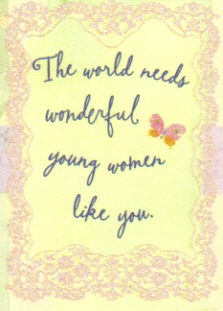 The world needs
wonderful
young women
like you.